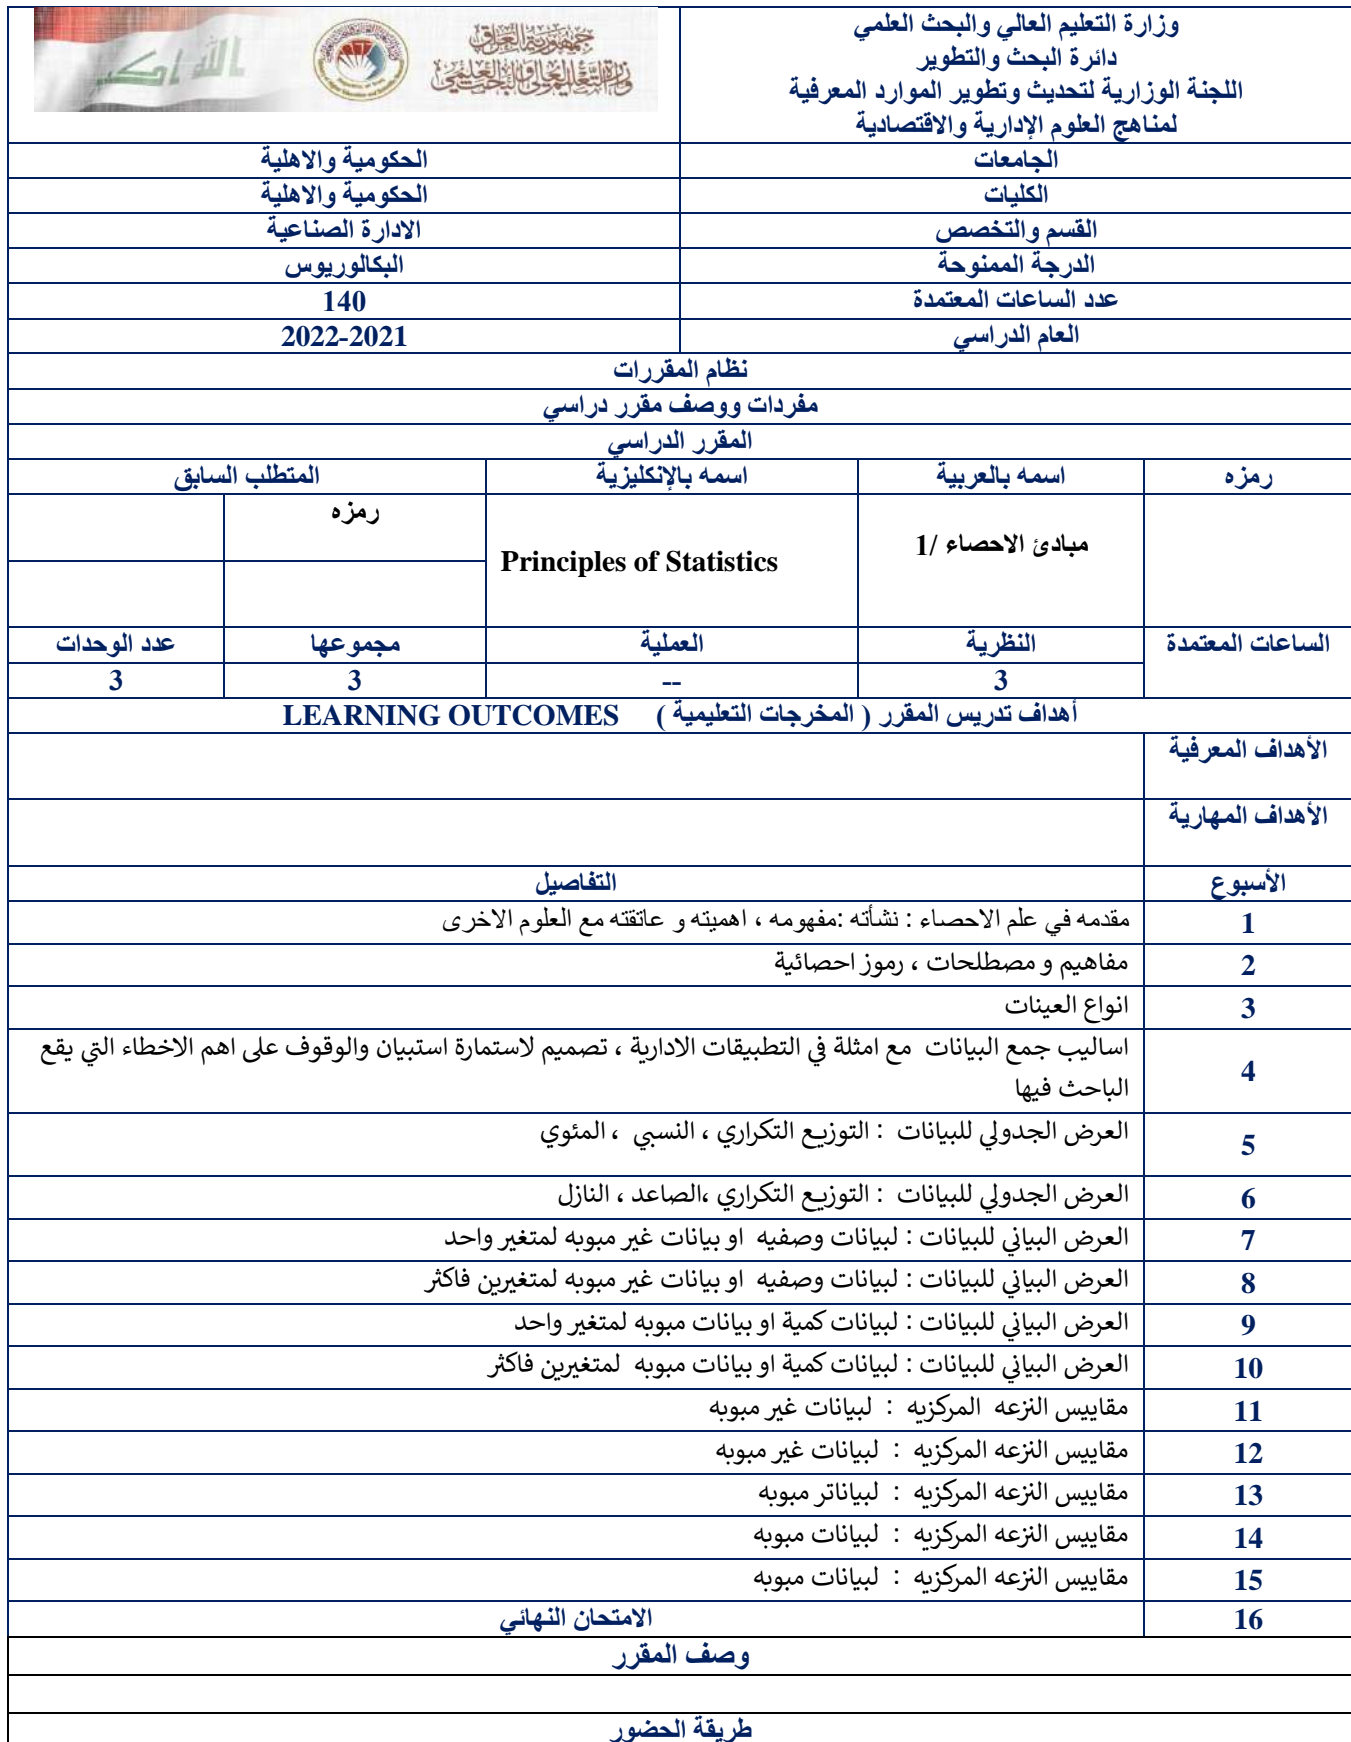 وزارة التعليم العالي والبحث العلمي
دائرة البحث والتطوير
اللجنة الوزارية لتحديث وتطوير الموارد المعرفية
لمناهج العلوم الإدارية والاقتصادية
جمهورية العراق
وزارة التعليم العالي والبحث العلمي
الله اكبر
الجامعات الحكومية والاهلية
الكليات الحكومية والاهلية
القسم والتخصص الادارة الصناعية
الدرجة الممنوحة البكالوريوس
عدد الساعات المعتمدة 140
العام الدراسي 2022-2021
نظام المقررات
مفردات ووصف مقرر دراسي
المقرر الدراسي
رمزه اسمه بالعربية اسمه بالإنكليزية المتطلب السابق
رمزه
مبادئ الاحصاء /1 Principles of Statistics
الساعات المعتمدة النظرية العملية مجموعها عدد الوحدات
3 -- 3 3
أهداف تدريس المقرر ( المخرجات التعليمية ) LEARNING OUTCOMES
الأهداف المعرفية
الأهداف المهارية
الأسبوع التفاصيل
1 مقدمه في علم الاحصاء : نشأته :مفهومه ، اهميته و عاتقته مع العلوم الاخرى
2 مفاهيم و مصطلحات ، رموز احصائية
3 انواع العينات
4 اساليب جمع البيانات مع امثلة في التطبيقات الادارية ، تصميم لاستمارة استبيان والوقوف على اهم الاخطاء التي يقع
الباحث فيها
5 العرض الجدولي للبيانات : التوزيع التكراري ، النسبي ، المئوي
6 العرض الجدولي للبيانات : التوزيع التكراري ،الصاعد ، النازل
7 العرض البياني للبيانات : لبيانات وصفيه او بيانات غير مبوبه لمتغير واحد
8 العرض البياني للبيانات : لبيانات وصفيه او بيانات غير مبوبه لمتغيرين فاكثر
9 العرض البياني للبيانات : لبيانات كمية او بيانات مبوبه لمتغير واحد
10 العرض البياني للبيانات : لبيانات كمية او بيانات مبوبه لمتغيرين فاكثر
11 مقاييس النزعه المركزيه : لبيانات غير مبوبه
12 مقاييس النزعه المركزيه : لبيانات غير مبوبه
13 مقاييس النزعه المركزيه : لبياناتر مبوبه
14 مقاييس النزعه المركزيه : لبيانات مبوبه
15 مقاييس النزعه المركزيه : لبيانات مبوبه
16 الامتحان النهائي
وصف المقرر
طريقة الحضور